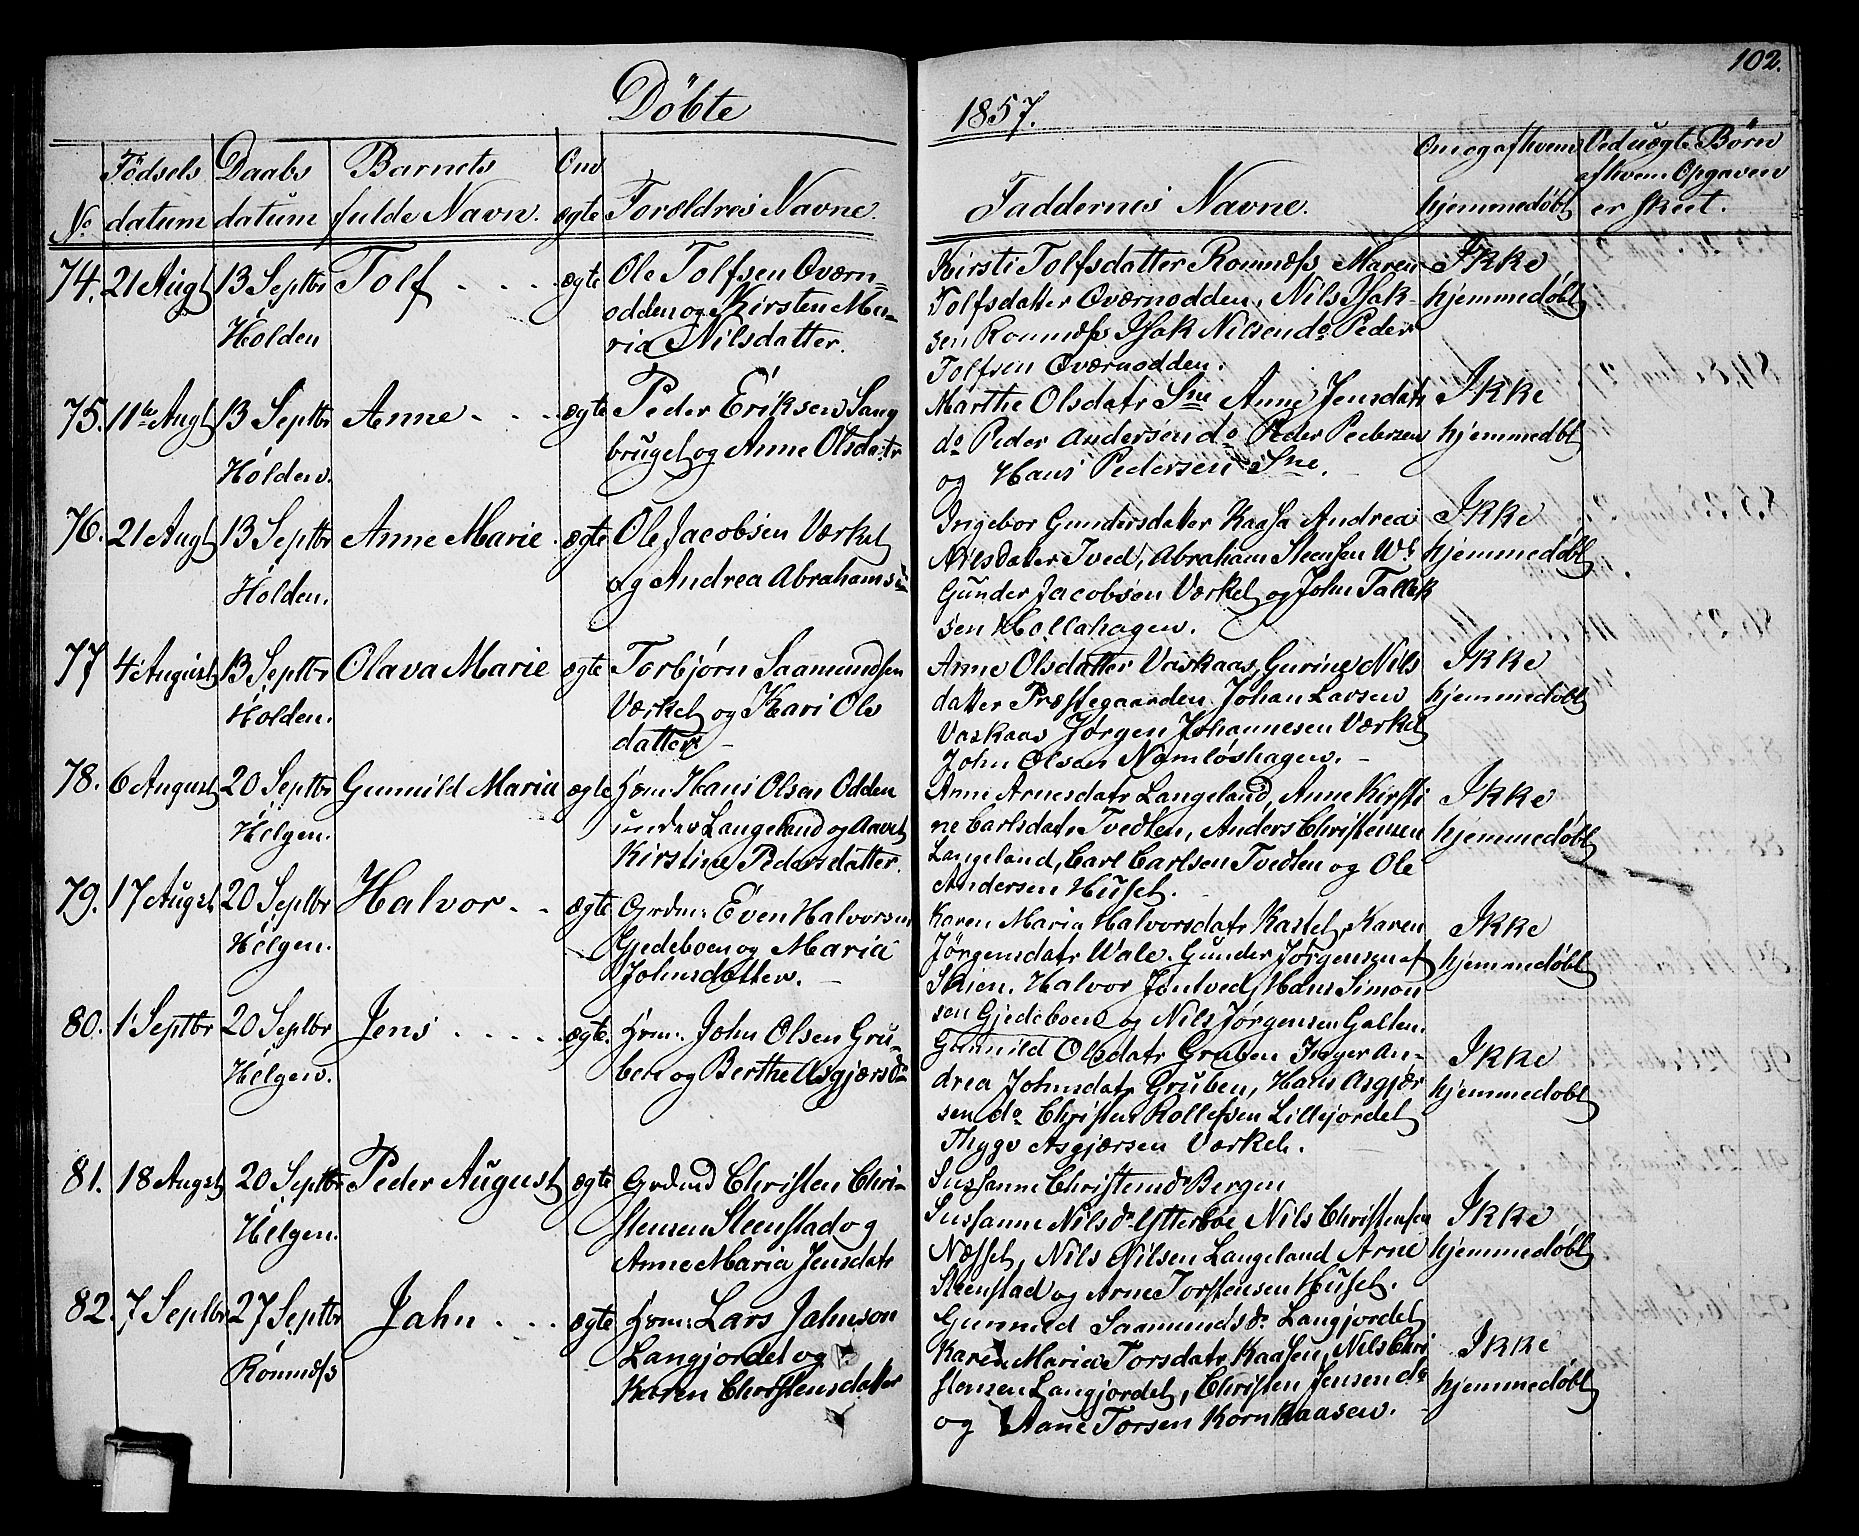 102.
Döbte
1857.
No
Födsels
datum
Daabs
datum
Barnets
fulde Navn.
Om
ægte
Forældres Navne.
Faddernes Navne.
Om og af hvem
hjemmedöbt
Ved uægte Börn
af hvem Opgaven
er skeet.
74. 21 Augt 13 Septbr Tolf ægte
Holden
Ole Tolfsen Oværn-
odden og Kirsten Ma-
ria Nilsdatter.
Kirsti Tolfsdatter Romnæss Maren
Tolfsdatter Oværnodden, Nils Isak-
sen Romnæss Isak Nilsen do Peder
Tolfsen Oværnodden.
Ikke
hjemmedöbt
75. 11te Augt 13 Septbr Anne ægte
Holden.
Peder Eriksen Saug
bruget og Anne Olsdatr
Marthe Olsdatr Sne Anne Jensdatr
do Peder Andersen do Peder Pedersen
og Hans Pedersen Sne.
Ikke
hjemmedöbt
76. 21 Augt 13 Septbr Anne Marie ægte
Holden.
Ole Jacobsen Værket
og Andrea Abrahams
Ingebor Gundersdatter Kaasa Andrea
Nilsdatter Tved, Abraham Steensen Wk
Gunder Jacobsen Værket og John Tallak
sen Hollahagen.
Ikke
hjemmedöbt
77 4 August 13 Septbr Olava Marie ægte
Holden.
Torbjørn Saamundsen
Værket og Kari Ols
datter
Anne Olsdatter Vaskaas, Gurine Nils
datter Præstegaarden Johan Larsen
Vaskaas Jørgen Johannesen Værket
John Olsen Namløshagen.
Ikke
hjemmedöbt
78. 6 August 20 Septbr Gunnild Maria ægte
Helgen.
Hsm: Hans Olsen Odden
under Langeland og Anne
Kirstine Pedersdatter.
Anne Arnesdatr Langeland, Anne Kirsti
ne Carlsdatr Tvedten, Anders Christensen
Langeland, Carl Carlsen Tvedten og Ole
Andersen Huset.
Ikke
hjemmedöbt
79. 17 Augst 20 Septbr Halvor ægte
Helgen.
Grdm: Even Halvorsen
Gjedeboen og Maria
Johnsdatter.
Karen Maria Halvorsdatr Kastet, Karen
Jörgensdatr Wale. Gunder Jörgensen af
Skien. Halvor Jontved, Hans Simon
sen Gjedeboen og Nils Jörgensen Galten.
Ikke
hjemmedöbt
80. 1 Septbr 20 Septbr Jens ægte.
Helgen.
Hsm: John Olsen Gru-
ben og Berthe Asgjærsdr
Gunnild Olsdatr Gruben Inger An-
drea Johnsdatr Gruben, Hans Asgjær
sen do Christen Rollefsen Lillejordet
Thygo Asgjærsen Værket.
Ikke
hjemmedöbt
81. 18 Augst 20 Septbr Peder August ægte
Helgen.
Grdmd Christen Chri-
stensen Steenstad og
Anne Maria Jensdatr
Sussanne Christensdr Bergen
Sussanne Nilsdr Ytterboe Nils Christensen
Næsset, Nils Nilsen Langeland Arne
Steenstad og Arne Torstensen Huset.
Ikke
hjemmedöbt
82. 7 Septbr 27 Septbr Jahn ægte
Romnæss
Hsm: Lars Jahnson
Langjordet og
Karen Christensdatter
Gunnild Saamundsdr Langjordet
Karen Maria Torsdatr Kaasen, Nils Chri
stensen Langjordet, Christen Jensen do
og Aane Torsen Kornkaasen.
Ikke
hjemmedöbt